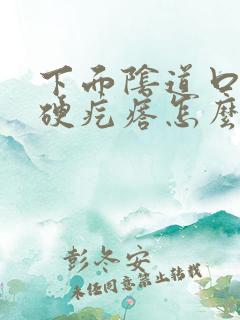 下而陰道口
硬疙瘩怎麼
彭冬安
未经同意禁止转载